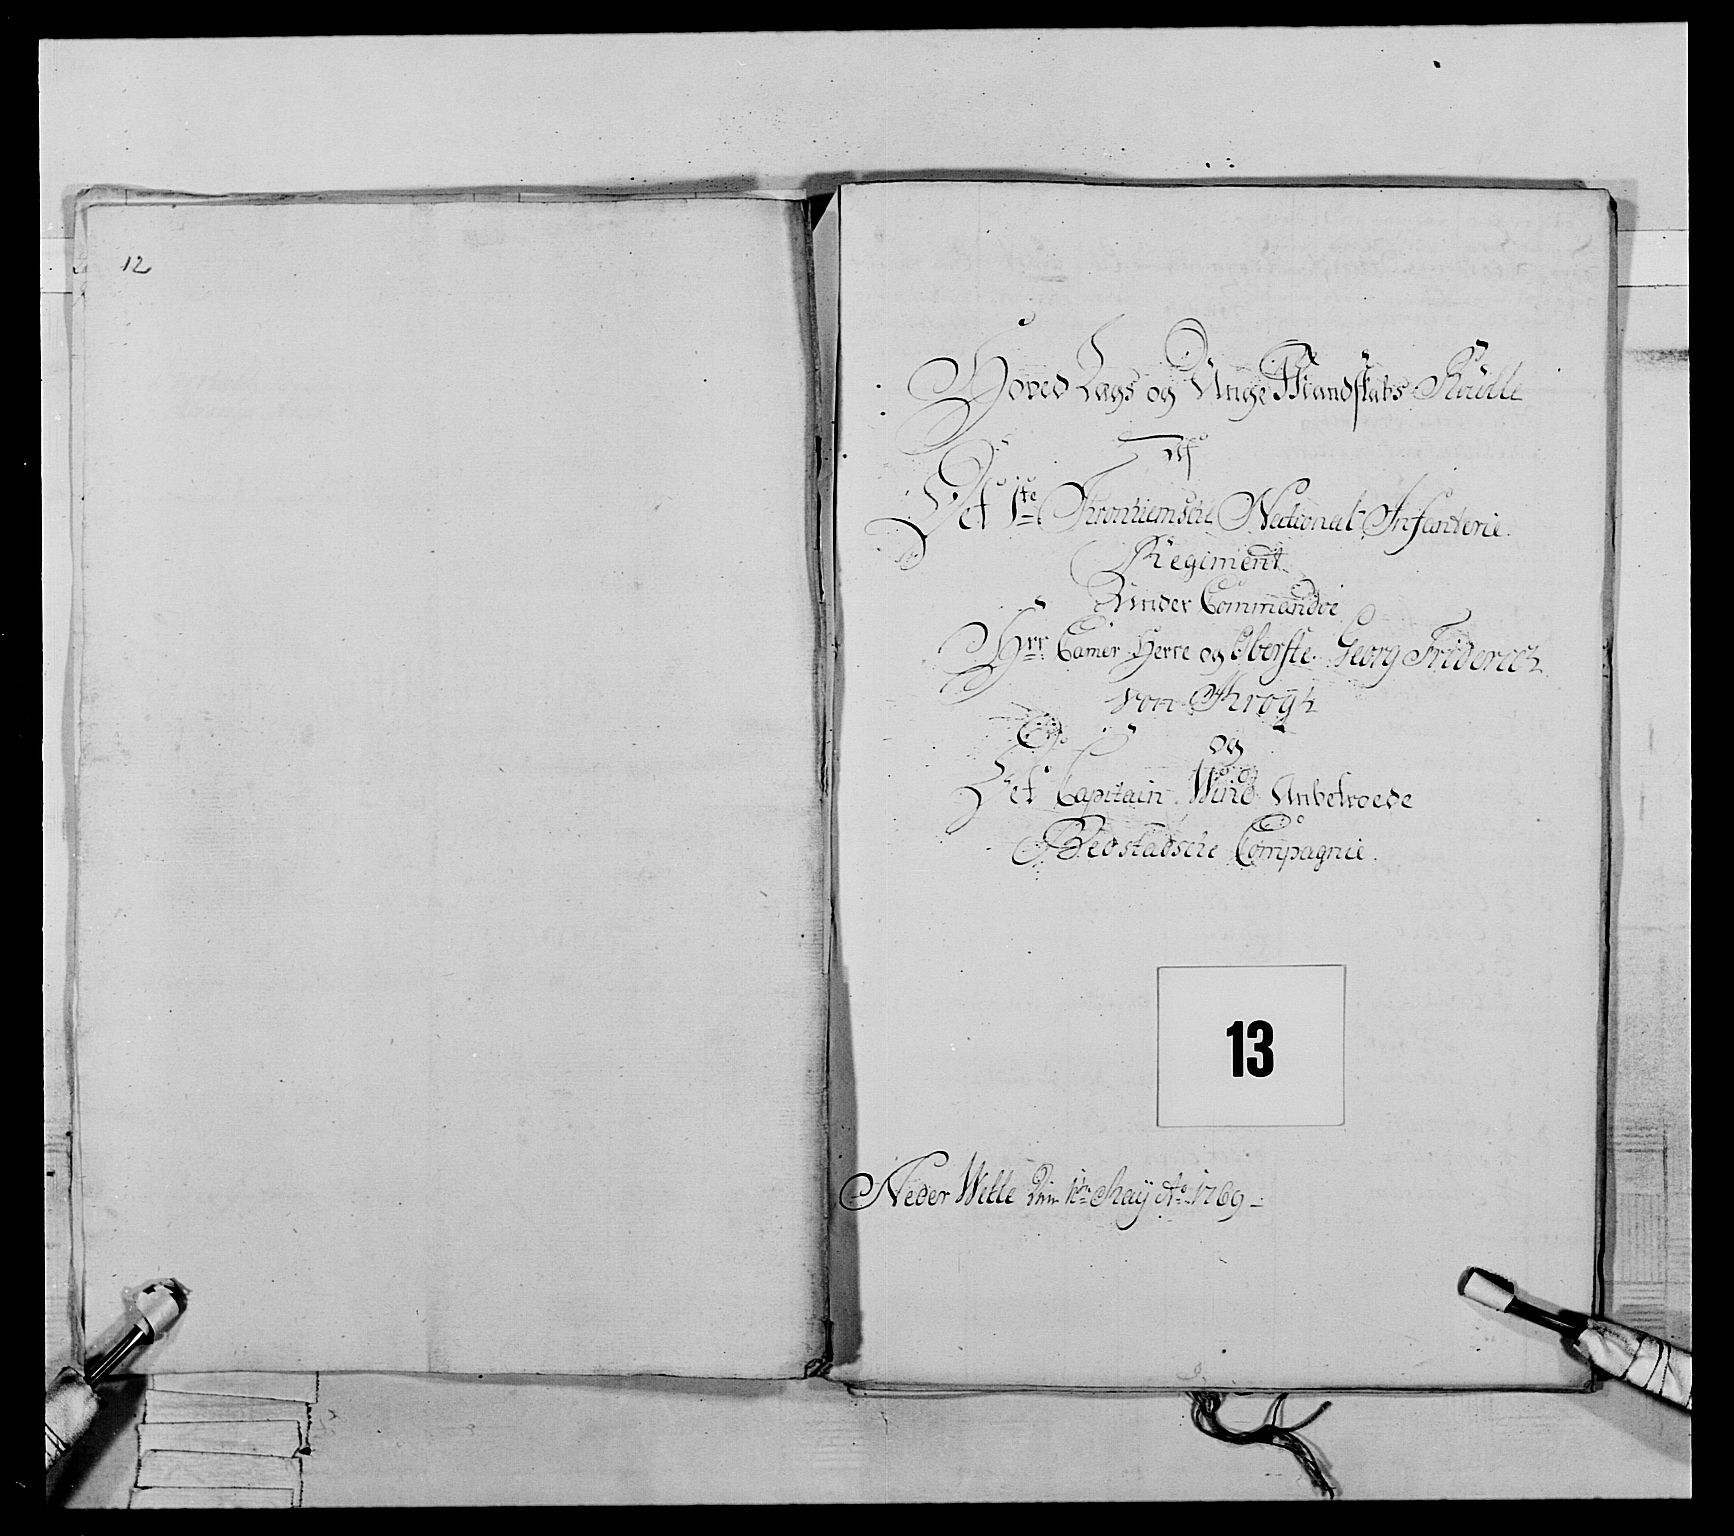 12
Hoved Lægs og Unge Mandskabs Rulle
Af
Det 1te Tronhiemsche National Infanterie
Regiment
Under Commandoe
Hrr Camer Herre og Oberste Georg Friderich
von Krogh
og
Det Capitain Wind Anbetroede
Bedstadsche Compagnie.
13
Neder Welle Den 1te May Ao 1769